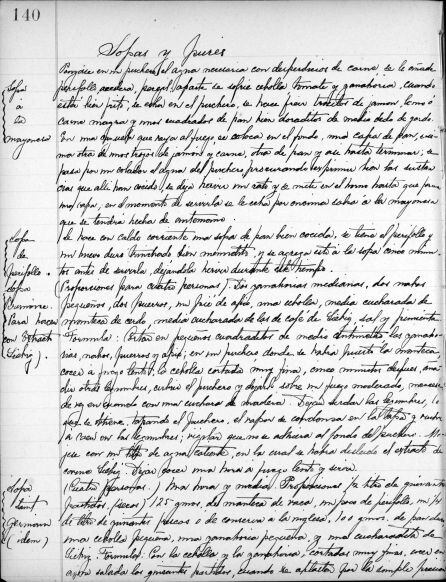 140
Sopas y Purés
Sopa
á
la
mayonesa
Póngase en un puchero el agua necesaria con desperdicios de carne se le añade
perifollo, acedera, perejil, aparte se sofríe cebolla tomate y zanahoria, cuando
está bien frito, se echa en el puchero, se hace freir trocitos de jamon, lomo ó
carne magra y unos cuadrados de pan bien doraditos de medio dedo de gordo.
En una que vaya al fuego se coloca en el fondo, una capa de pan, enci-
ma otra de unos trozos de jamón y carne, otra de pan y así hasta terminar, se
pasa por un colador el agua del puchero procurando exprimir bien las sustan-
cias que allí han cocido, se deja hervir un rato y se mete en el horno hasta que
, en el momento de servirla se le echa por encima salsa á la mayonesa
que se tendrá hecha de antemano.
Sopa
de
perifollo
Se hace con caldo corriente una sopa de pan bien cocida, se tiene el perifollo y
un huevo duro trinchado bien menudito, y se agrega esto á la sopa cinco minu-
tos antes de servirla, dejandola hervir durante este tiempo.
Sopa
Para hacer
con Extracto
Liebig).
(Proporciones para cuatro personas). Dos zanahorias medianas, dos nabos
pequeños, dos puerros, un pié de apio, una cebolla, media cucharada de
manteca de cerdo, media cucharada de las de café de Liebig, sal y pimienta
Formula: Cortar en pequeños cuadraditos de medio centímetro las zanaho-
rias, nabos, puerros y apio; en un puchero donde se habrá puesto la manteca
cocer á fuego lento la cebolla cortada muy fina, cinco minutos despues, aña-
dir otras legumbres, cubrir el puchero y dejarlo sobre un fuego moderado,
de vez en cuando con una cuchara de madera. Dejar sudar las legumbres, lo
que se obtiene, tapando el puchero, el vapor se condensa en la tapa y vuelve
á caer en las legumbres; vigilar que no se adhiera al fondo del puchero.
con un litro de agua caliente, en la cual se habrá desleido el extracto de
carne Liebig. Dejar cocer una hora á fuego lento y servir.
Sopa
Saint
Germain
(idem)
(Cuatro personas.) Una hora y media. Proporciones: ½ litro de guisantes
partidos, secos, 125 gmos. de manteca de vaca, un poco de perifollo, un ½
de litro de guisantes frescos ó de conserva á la inglesa, 100 gmos. de pan duro
una cebolla pequeña, una zanahoria pequeña, y una cucharadita de
Liebig. Formula: Con la cebolla y la zanahoria, cortadas muy finas, cocer en
agua salada los guisantes partidos, cuando se aplasten por la simple presión